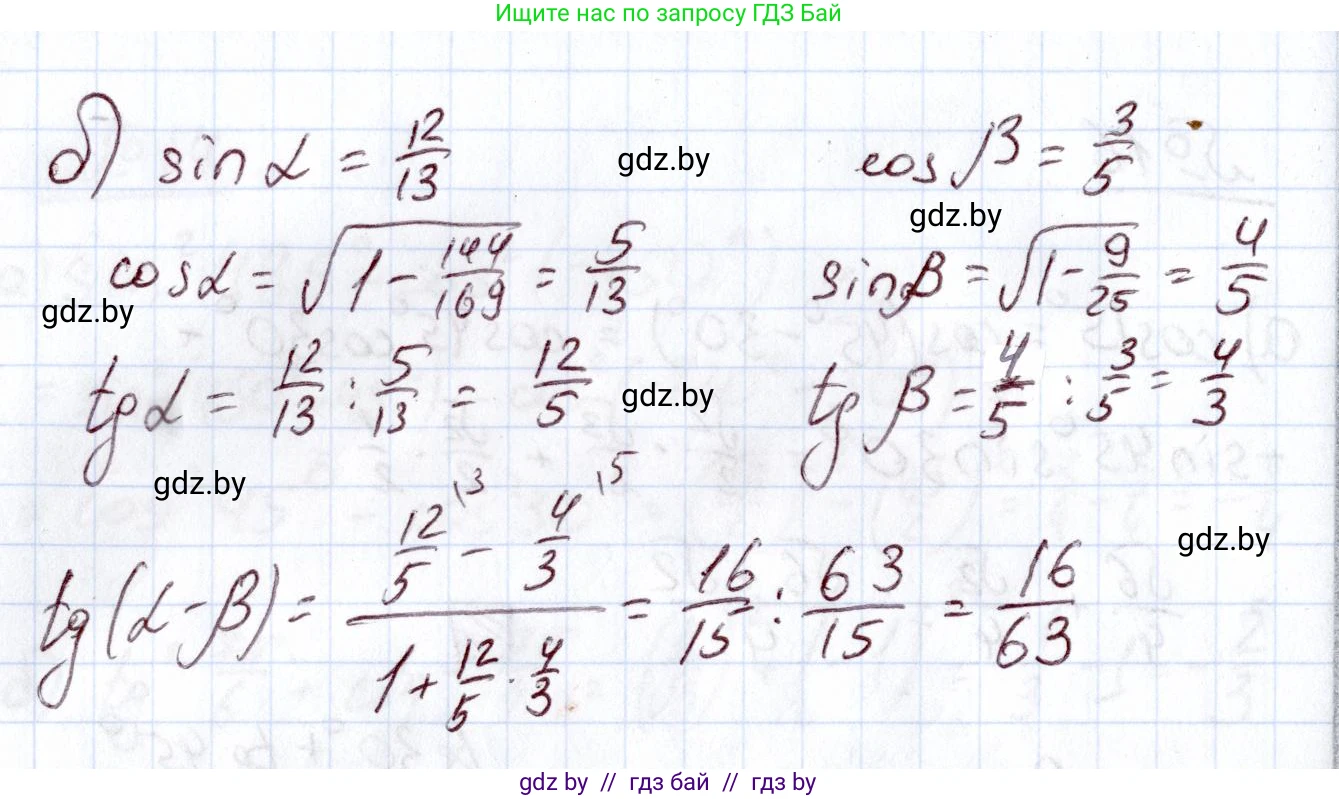 Ищите нас по запросу ГДЗ Бай
б) sin α = 12/13 gdz.by cos β = 3/5
gdz.by
cos α = √(1 - 144/169) = 5/13 sin β = √(1 - 9/25) = 4/5
gdz.by
tg α = 12/13 : 5/13 = 12/5 gdz.by tg β = 4/5 : 3/5 = 4/3
gdz.by
gdz.by
tg(α-β) = (12/5 \3 - 4/3 \5)/(1 + 12/5 · 4/3) = 16/15 : 63/15 = 16/63
gdz by // гдз бай // гдз by